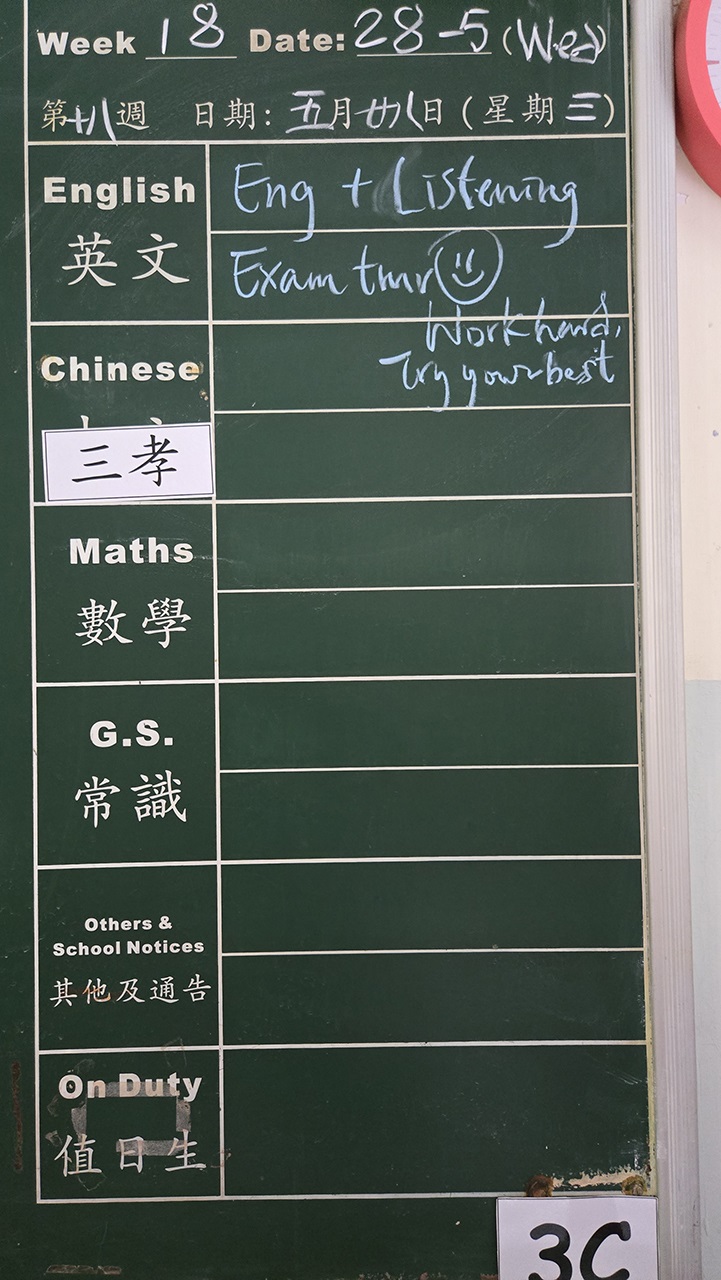 Week 18 Date: 28-5 (Wed)
第十八週 日期: 五月廿八日 (星期三)
English
英文
Eng + Listening
Exam tmr
Work hard,
Try your best
Chinese
三孝
Maths
數學
G.S.
常識
Others &
School Notices
其他及通告
On Duty
值日生
3C